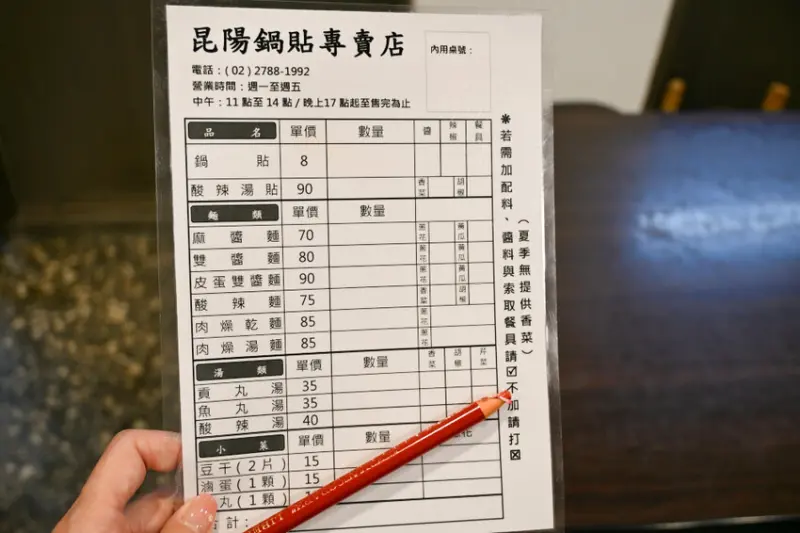 昆陽鍋貼專賣店
內用桌號：
電話：(02)2788-1992
營業時間：週一至週五
中午：11 點至 14 點 / 晚上17 點起至售完為止
品名 單價 數量 醬 辣椒 餐具
鍋貼 8
酸辣湯貼 90 香菜 胡椒
麵類 單價 數量
麻醬麵 70 蔥花 黃瓜
雙醬麵 80 蔥花 黃瓜
皮蛋雙醬麵 90 蔥花 黃瓜
酸辣麵 75 香菜 胡椒
肉燥乾麵 85 蔥花
肉燥湯麵 85 蔥花
湯類 單價 數量 香菜 胡椒 芹菜
貢丸湯 35
魚丸湯 35
酸辣湯 40
小菜 單價 數量 花
豆干(2片) 15
滷蛋(1顆) 15
丸(1顆)
合計：
※若需加配料、醬料與索取餐具請☑不加請打☒
（夏季無提供香菜）